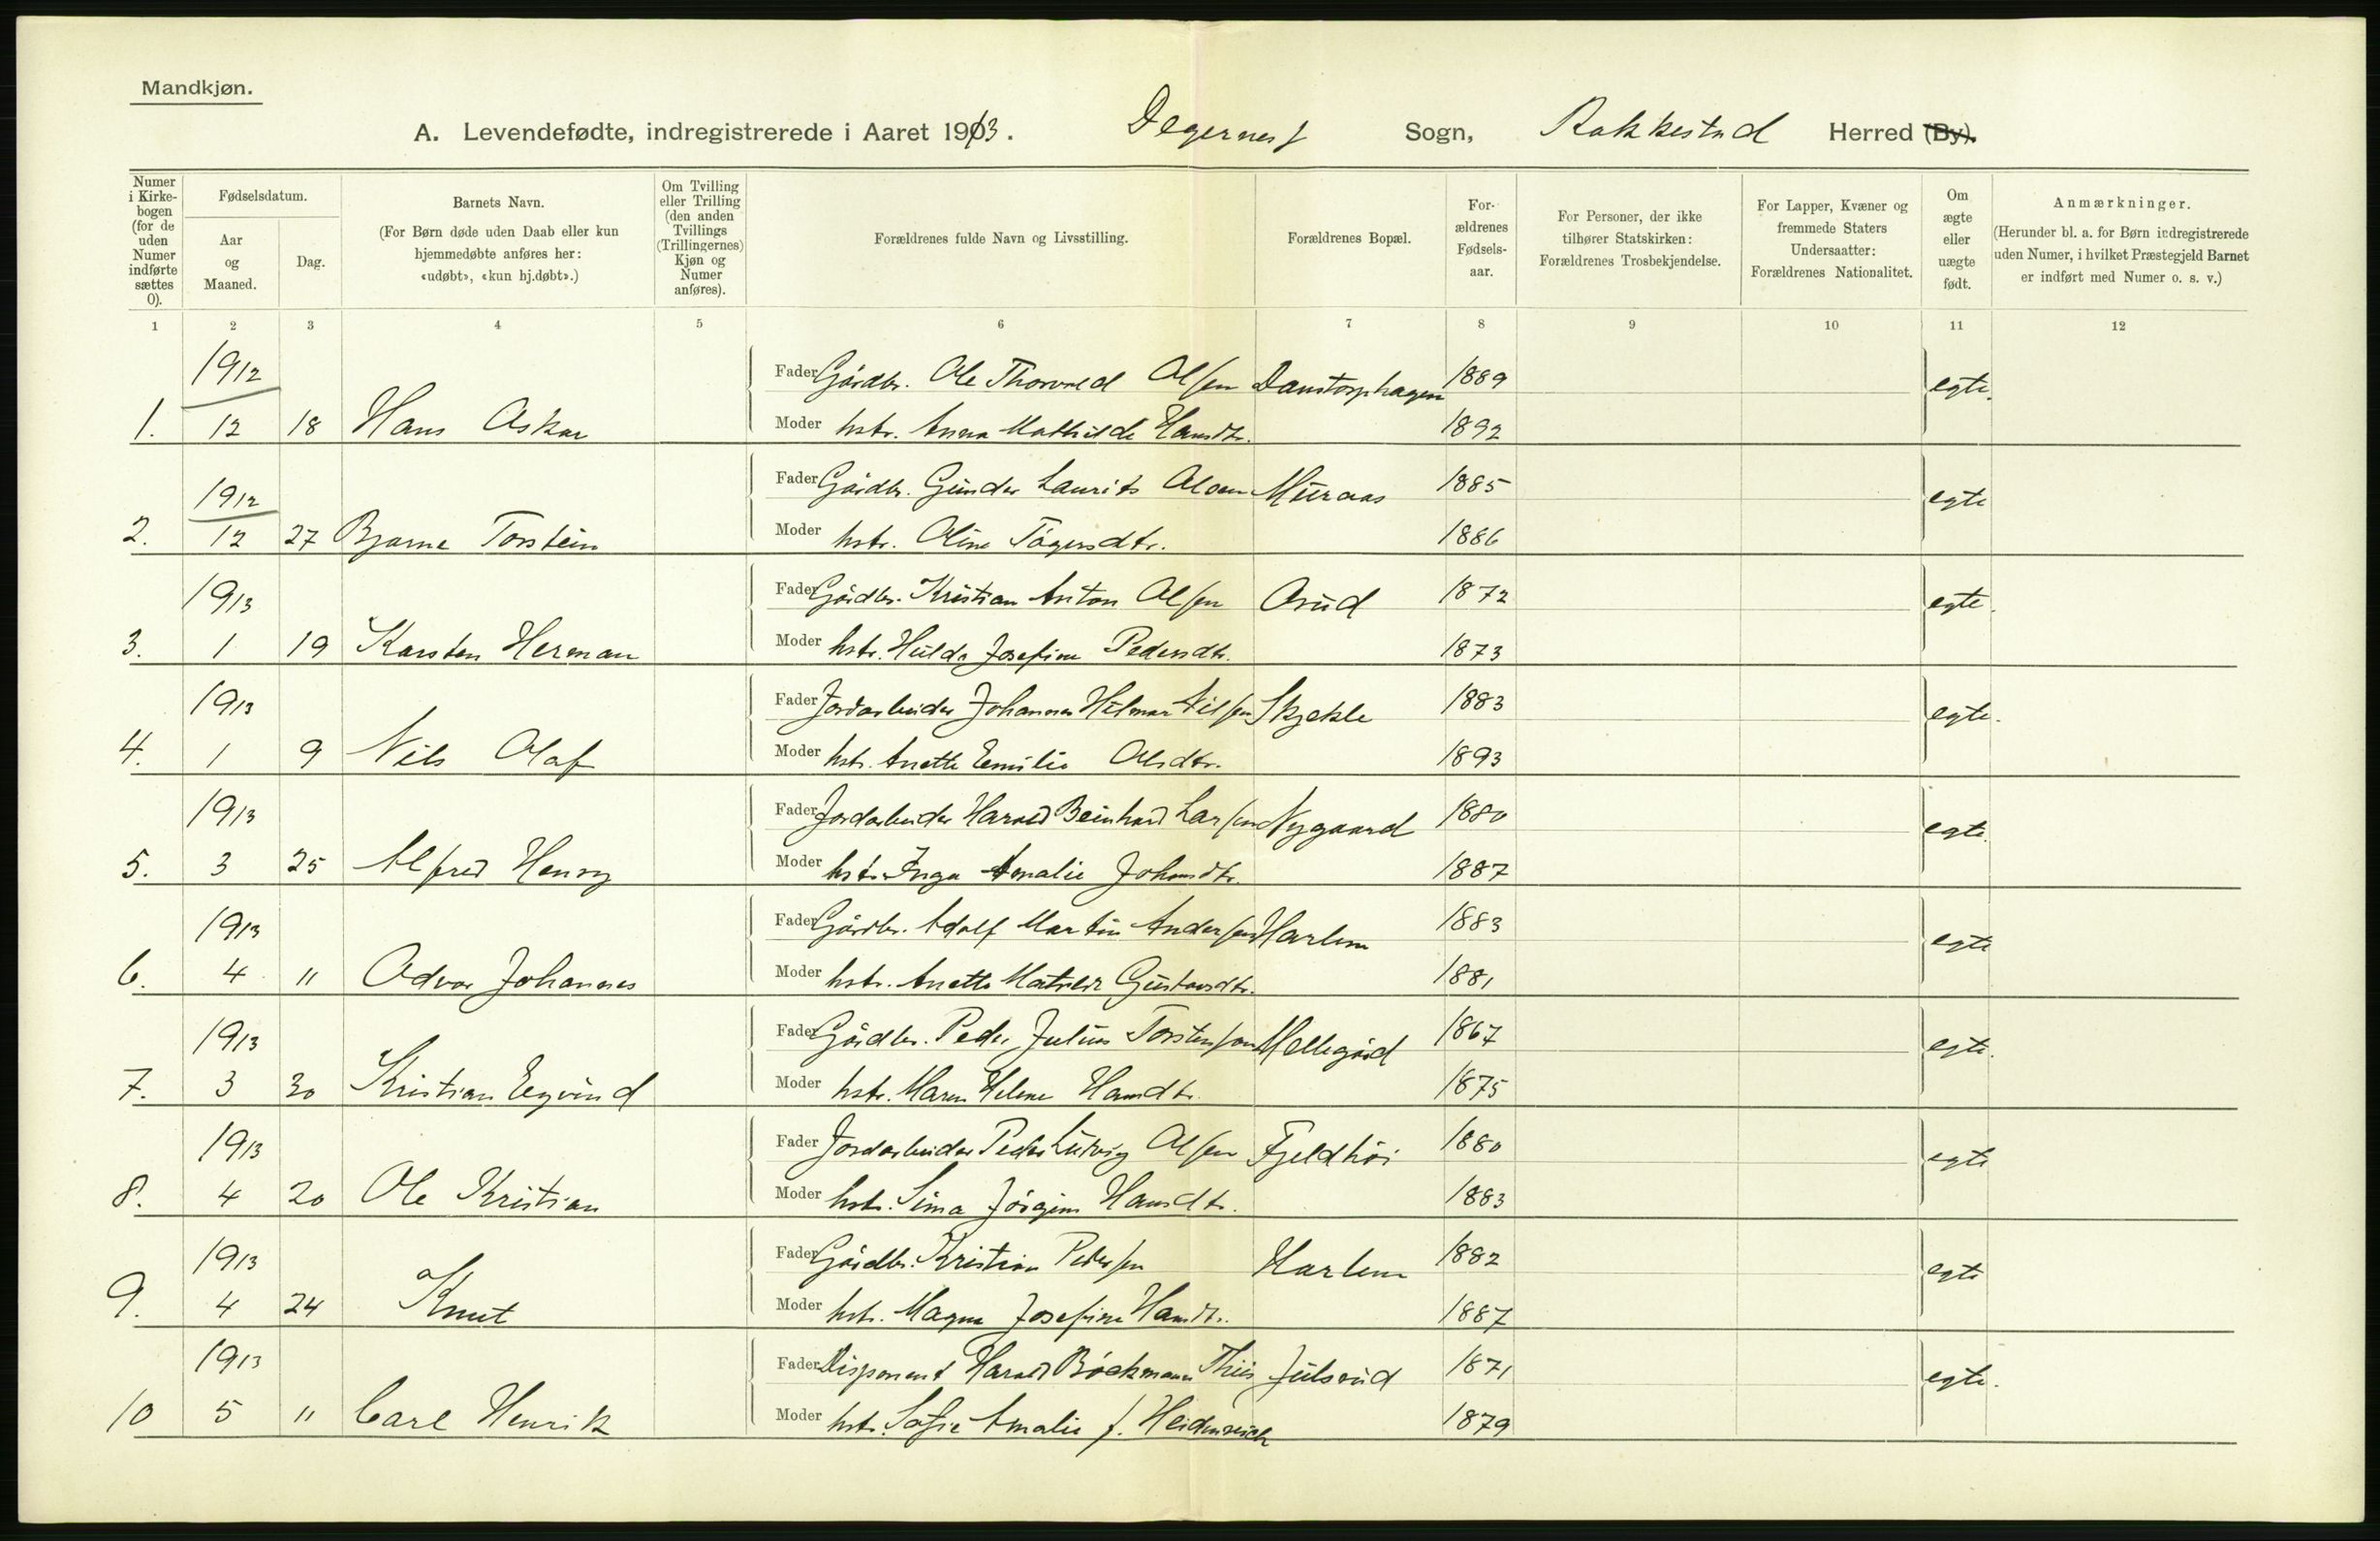 Mandkjøn.
A. Levendefødte, indregistrerede i Aaret 1913. Degernes Sogn, Rakkestad Herred (By).
Numer i Kirkebogen (for de uden Numer indførte sættes 0).
Fødselsdatum.
Aar og Maaned.
Dag.
Barnets Navn.
(For Børn døde uden Daab eller kun hjemmedøbte anføres her: «udøbt», «kun hj.døbt».)
Om Tvilling eller Trilling (den anden Tvillings (Trillingernes) Kjøn og Numer anføres).
Forældrenes fulde Navn og Livsstilling.
Forældrenes Bopæl.
Forældrenes Fødselsaar.
For Personer, der ikke tilhører Statskirken: Forældrenes Trosbekjendelse.
For Lapper, Kvæner og fremmede Staters Undersaatter: Forældrenes Nationalitet.
Om ægte eller uægte født.
Anmærkninger.
(Herunder bl. a. for Børn indregistrerede uden Numer, i hvilket Præstegjeld Barnet er indført med Numer o. s. v.)
1 2 3 4 5 6 7 8 9 10 11 12
1912 Fader Gårdbr. Ole Thorvald Olsen Danstorphagen 1889 egte.
1. 12 18 Hans Oskar Moder hstr. Anna Mathilde Hansdtr. 1892
1912 Fader Gårdbr. Gunder Laurits Olsen Muraas 1885 egte
2. 12 27 Bjarne Torstein Moder hstr. Oline Tågersdtr. 1886
1913 Fader Gårdbr. Kristian Anton Olsen Orud 1872 egte.
3. 1 19 Karsten Herman Moder hstr. Hulda Josefine Pedersdtr. 1873
1913 Fader Jordarbeider Johannes Hilmar Nilsen Skjekle 1883 egte.
4. 1 9 Nils Olaf Moder hstr. Anette Emilie Olsdtr. 1893
1913 Fader Jordarbeider Harald Beinhard Larsen Nygaard 1880 egte.
5. 3 25 Alfred Henry Moder hstr. Inga Amalie Johansdtr. 1887
1913 Fader Gårdbr. Adolf Martin Andersen Harlem 1883 egte
6. 4 11 Odvar Johannes Moder hstr. Anette Matilde Gustavsdtr. 1881
1913 Fader Gårdbr. Peder Julius Torstensen Mellegård 1867 egte.
7. 3 30 Kristian Eyvind Moder hstr. Maren Helene Hansdtr. 1875
1913 Fader Jordarbeider Peder Ludvig Olsen Fjeldhöi 1880 egte
8. 4 20 Ole Kristian Moder hstr. Sina Jörgine Hansdtr. 1883
1913 Fader Gårdbr. Kristian Pedersen Harlem 1882 egte
9. 4 24 Knut Moder hstr. Magna Josefine Hansdtr. 1887
1913 Fader Disponent Harald Böckmann Thiis Julsrud 1871 egte.
10 5 11 Carl Henrik Moder hstr. Sofie Amalie f. Heidenreich 1879